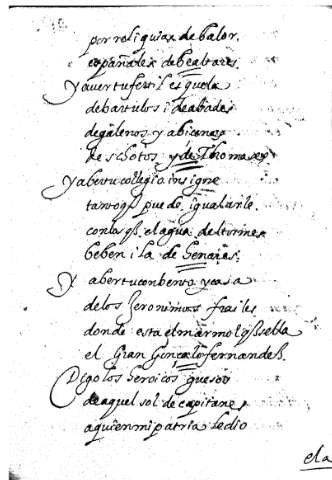 por reliquias de balor.
españoles de bealtares
y a ver tu fertil esquela
de bartulos i de abades
de galenos y abicenas
de scbotos y de Thomases
y a ber tu collegio insigne
tanto q̃ puede igualarse.
con los q̃ el agua del tormes
beben i la de Genares.
y a ber tu conbento y casa
de los Jeronimos frailes
donde esta el marmol q̃ sella
el Gran Gonçalo fernandes.
Digo los heroicos guesos
de aquel sol de capitanes
a quien mi patria le dio
el a